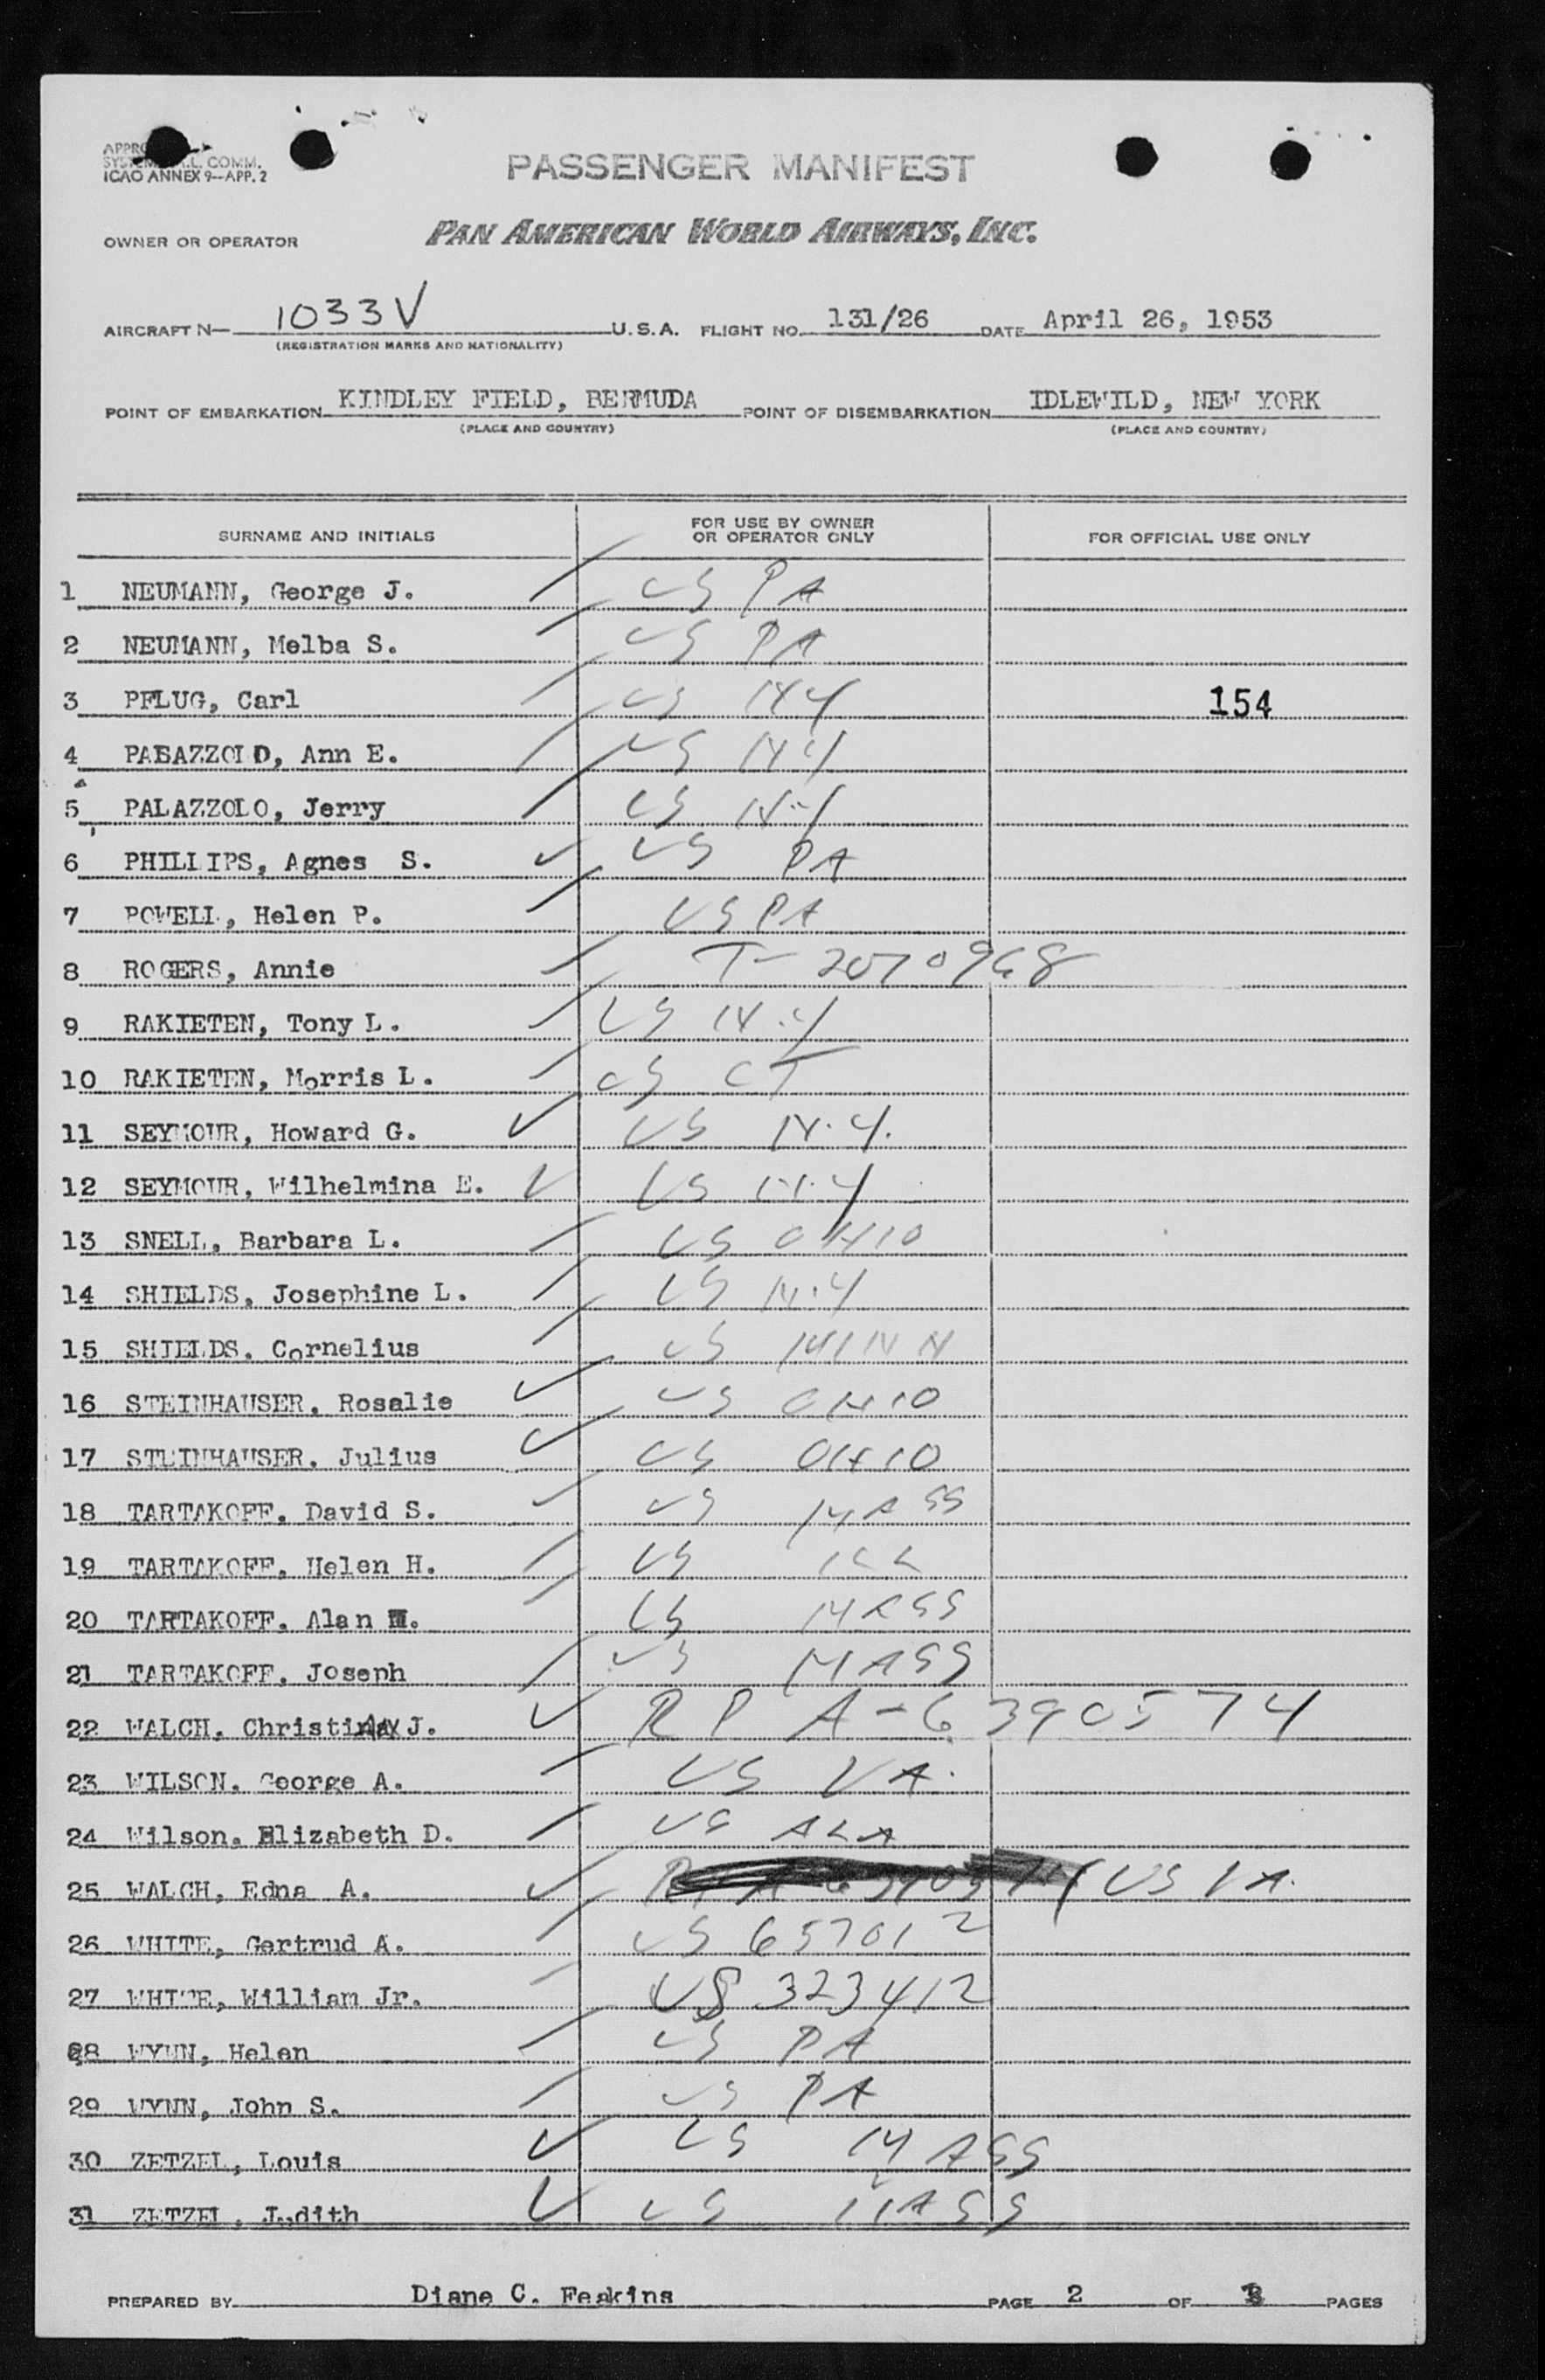 SYSTEM
COMM.
ICAO ANNEX 9—APP. 2
PASSENGER MANIFEST
OWNER OR OPERATOR PAN AMERICAN WORLD AIRWAYS, INC.
AIRCRAFT N— 1033V U.S.A. FLIGHT NO. 131/26 DATE April 26, 1953
(REGISTRATION MARKS AND NATIONALITY)
POINT OF EMBARKATION KINDLEY FIELD, BERMUDA POINT OF DISEMBARKATION IDLEWILD, NEW YORK
(PLACE AND COUNTRY) (PLACE AND COUNTRY)
SURNAME AND INITIALS FOR USE BY OWNER OR OPERATOR ONLY FOR OFFICIAL USE ONLY
1 NEUMANN, George J. US PA
2 NEUMANN, Melba S. US PA
3 PFLUG, Carl US NY 154
4 Ann E. US N.Y
5 PALAZZOLO, Jerry US N.Y
6 PHILLIPS, Agnes S. US PA
7 POWELL, Helen P. US PA
8 ROGERS, Annie T-2070968
9 RAKIETEN, Tony L. US N.Y
10 RAKIETEN, Morris L. US CT
11 SEYMOUR, Howard G. US N.Y.
12 SEYMOUR, Wilhelmina E. US N.Y
13 SNELL, Barbara L. US OHIO
14 SHIELDS, Josephine L. US N.Y
15 SHIELDS, Cornelius US MINN
16 STEINHAUSER, Rosalie US OHIO
17 STEINHAUSER, Julius US OHIO
18 TARTAKOFF, David S. US MASS
19 TARTAKOFF, Helen H. US ILL
20 TARTAKOFF, Alan US MASS
21 TARTAKOFF, Joseph US MASS
22 WALCH, J. RP A-6390574
23 WILSON, George A. US VA.
24 Wilson, Elizabeth D. US ALA
25 WALCH, Edna A. US VA.
26 WHITE, Gertrud A. US 657012
27 WHITE, William Jr. US 323412
28 WYNN, Helen US PA
29 WYNN, John S. US PA
30 ZETZEL, Louis US MASS
31 ZETZEL, Judith US MASS
PREPARED BY Diane C. Feakins PAGE 2 OF 3 PAGES